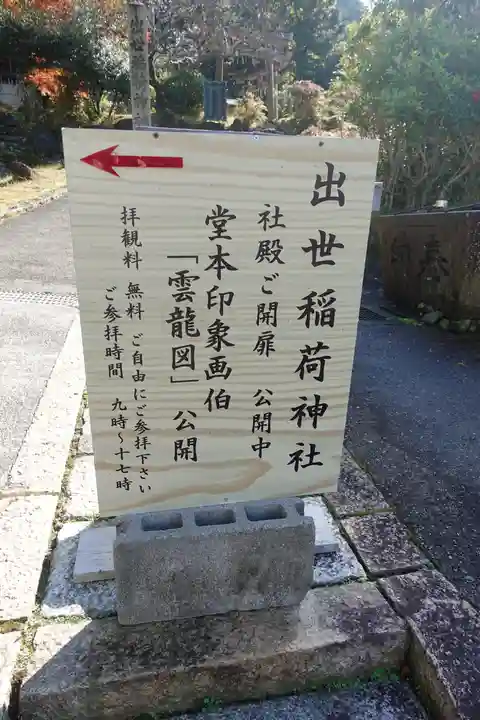 出世稲荷神社
社殿ご開扉 公開中
堂本印象画伯
「雲龍図」公開
拝観料 無料 ご自由にご参拝下さい
ご参拝時間 九時～十七時